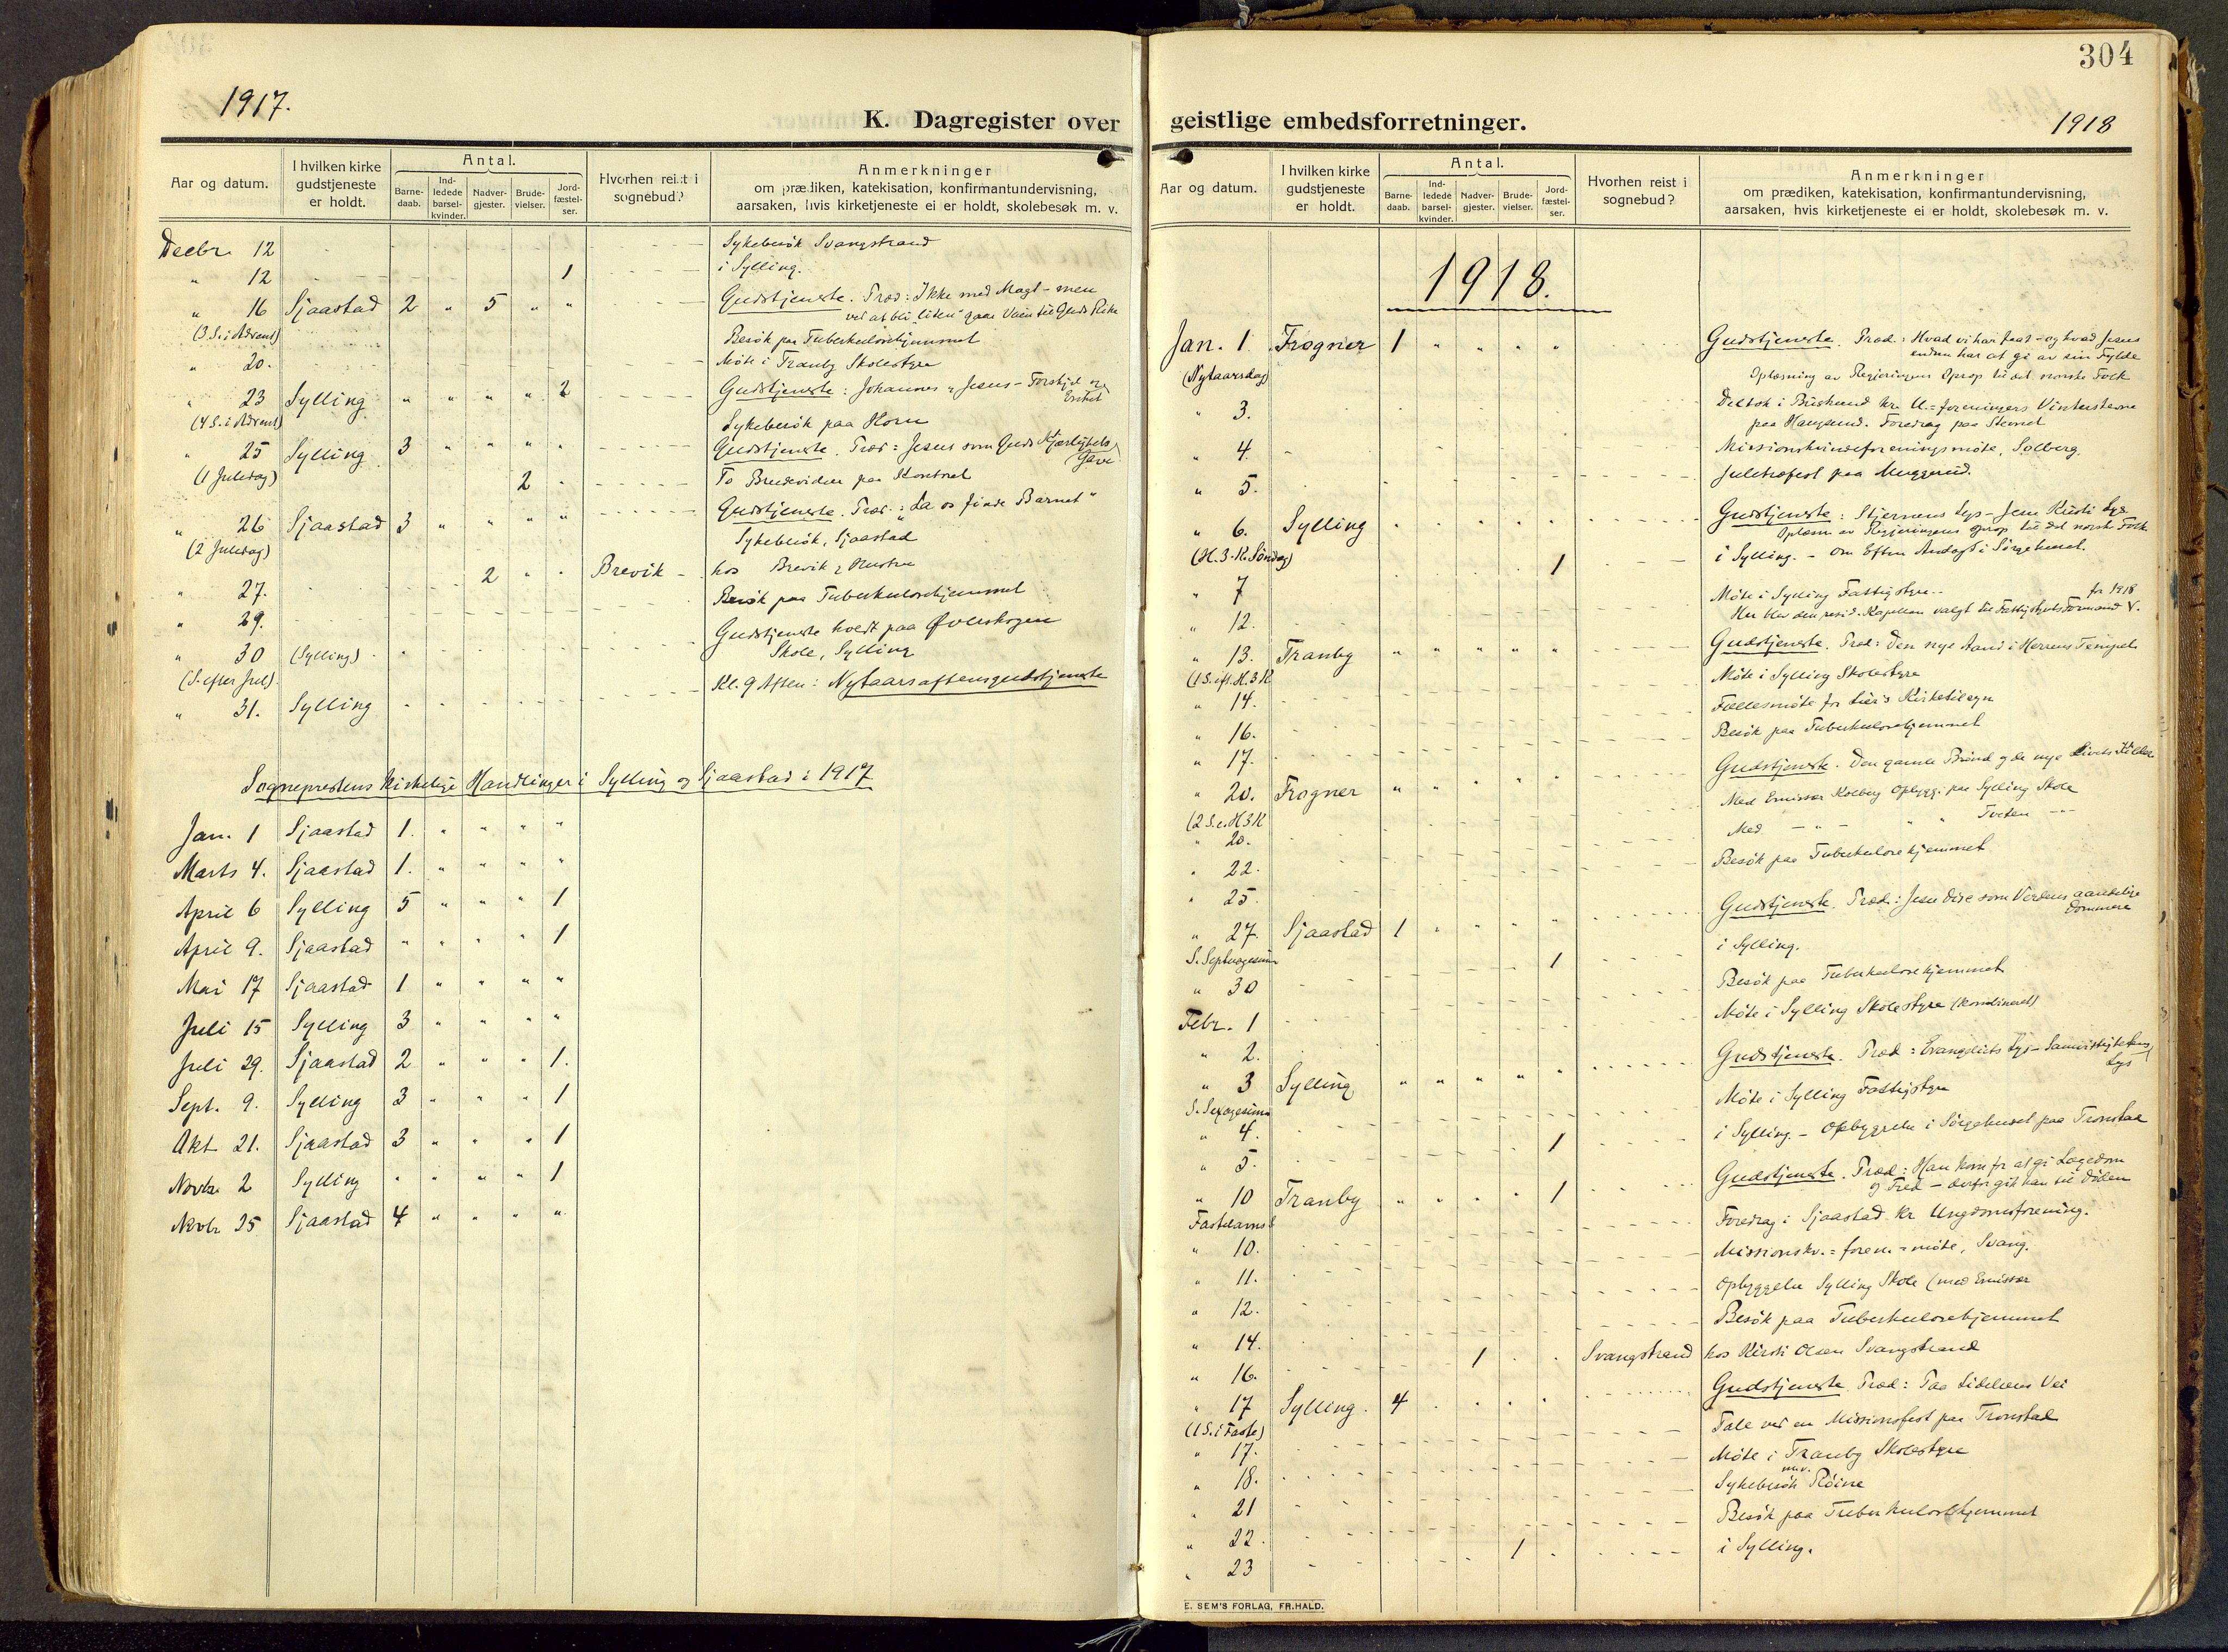 304
1917.
K. Dagregister over geistlige embedsforretninger.
1918
Aar og datum.
I hvilken kirke gudstjeneste er holdt.
Antal.
Barnedaab.
Indledede barselkvinder.
Nadvergjester.
Brudevielser.
Jordfæstelser.
Hvorhen reist i sognebud?
Anmerkninger
om prædiken, katekisation, konfirmantundervisning,
aarsaken, hvis kirketjeneste ei er holdt, skolebesøk m. v.
Decbr. 12 Sykebesök Svangstrand
" 12 1 i Sylling.
" 16 Sjaastad 2 " 5 " " Gudstjeneste. Præd: Ikke med Magt - men
ved at bli "liten" gaar Veien til Guds Rike
(3 S. i Advent) Besök paa Tuberkulosehjemmet
" 20. Möte i Tranby Skolestyre
" 23 Sylling " " " " 2 Gudstjeneste: Johannes & Jesus - Forskjel og
Enhet
(4 S. i Advent) Sykebesök paa Horn
" 25 Sylling 3 " " " " Gudstjeneste. Præd: Jesus som Guds Kjærligheds
Gave
(1 Juledag) 2 To Brudevielser paa Kontoret
" 26 Sjaastad 3 " " " " Gudstjeneste. Præd: "La os finde Barnet"
(2 Juledag) Sykebesök, Sjaastad
" 27. 2 " " Brevik hos Brevik & Hustru
" 29. Besök paa Tuberkulosehjemmet
" 30 (Sylling) Gudstjeneste holdt paa Överskogen
Skole, Sylling
(S. efter Jul)
" 31. Sylling Kl. 9 Aften: Nytaarsaftensgudstjeneste
Sogneprestens kirkelige Handlinger i Sylling og Sjaastad i 1917
Jan. 1 Sjaastad 1. " " " "
Marts 4. Sjaastad 1. " " " "
April 6 Sylling 5 " " " 1
April 9. Sjaastad " " " " 1
Mai 17 Sjaastad 1 " " " "
Juli 15 Sylling 3 " " " "
Juli 29. Sjaastad 2 " " " 1.
Sept. 9. Sylling 3 " " " 1
Okt. 21. Sjaastad 3 " " " 1
Novbr. 2 Sylling " " " " 1
Novbr 25 Sjaastad 4 " " " "
Aar og datum.
I hvilken kirke gudstjeneste er holdt.
Antal.
Barnedaab.
Indledede barselkvinder.
Nadvergjester.
Brudevielser.
Jordfæstelser.
Hvorhen reist i sognebud?
Anmerkninger
om prædiken, katekisation, konfirmantundervisning,
aarsaken, hvis kirketjeneste ei er holdt, skolebesøk m. v.
1918.
Jan. 1. Frogner 1 " " " " Gudstjeneste. Præd: Hvad vi har faat - og hvad Jesus
endnu har at gi av sin Fylde
(Nytaarsdag) Oplæsning av Regjeringens Oprop til det norske Folk
" 3. Deltok i Buskerud kr. U.=foreningers Vinterstevne
paa Haugsund. Foredrag paa Stevnet
" 4. Missionskvindeforeningsmöte, Solberg.
" 5. Juletræfest paa Muggerud.
" 6. Sylling Gudstjeneste: Stjernens Lys - Jesu Kristi Lys
Oplæsn. av Regjeringens Oprop til det norske Folk.
(H. 3. K. Söndag)
" 7 1 i Sylling. - Om Eftm Andagt i Sörgehuset.
" 12. Möte i Sylling Fattigstyre.. for 1918
Her blev den resid. Kapellan valgt til Fattigstyrets Formand
" 13. Tranby " " " " " Gudstjeneste. Præd: Den nye Aand i Herrens Tempel
(1 S. eft. H. 3 K
" 14. Möte i Sylling Skolestyre
" 16. Fællesmöte for Lier's Kirketilsyn
" 17. Besök paa Tuberkulosehjemmet
" 20. Frogner " " " " " Gudstjeneste. Den gamle Brönd og de nye Livets Kilder
(2 S. e. H 3 K
" 20. Med Emissær Kolberg Opbygg. paa Sylling Skole
" 22. Med - " - " " Tveten - -
" 25. Besök paa Tuberkulosehjemmet
" 27. Sjaastad 1 " " " " Gudstjeneste. Præd: Jesu Dise som Verdens aandelige
Dommere
S. Septuagesima
" 30 1 i Sylling.
Febr. 1 Besök paa Tuberkulosehjemmet
" 2. Möte i Sylling Skolestyre (kombineret)
" 3 Sylling " " " " " Gudstjeneste. Præd: Evangeliets Lys - Samvittighetens
Lys
S. Sexagesima
" 4. Möte i Sylling Fattigstyre
" 5. 1 i Sylling - Opbyggelse i Sörgehuset paa Tronstad
" 10 Tranby " " " " 1 Gudstjeneste. Præd: Han kom for at gi Lægedom
og Fred - derfor gik han til Döden
Fastelavns S
" 10. Foredrag i Sjaastad kr Ungdomsforening.
" 11. Missionskv.=foren.=möte, Svang.
" 12. Opbyggelse Sylling Skole (med Emissær
" 14. Besök paa Tuberkulosehjemmet
" 16. 1 Svangstrand hos Kirsti Olsen Svangstrand
" 17 Sylling. 4 Gudstjeneste. Præd: Paa Lidelsens Vei
(1 S. i Faste)
" 17. Tale ved en Missionsfest paa Tronstad
" 18. Möte i Tranby Skolestyre
" 21 Sykebesök Röine
" 22. Besök paa Tuberkulosehjemmet
" 23 1 i Sylling.
E. SEM'S FORLAG, FR.HALD.